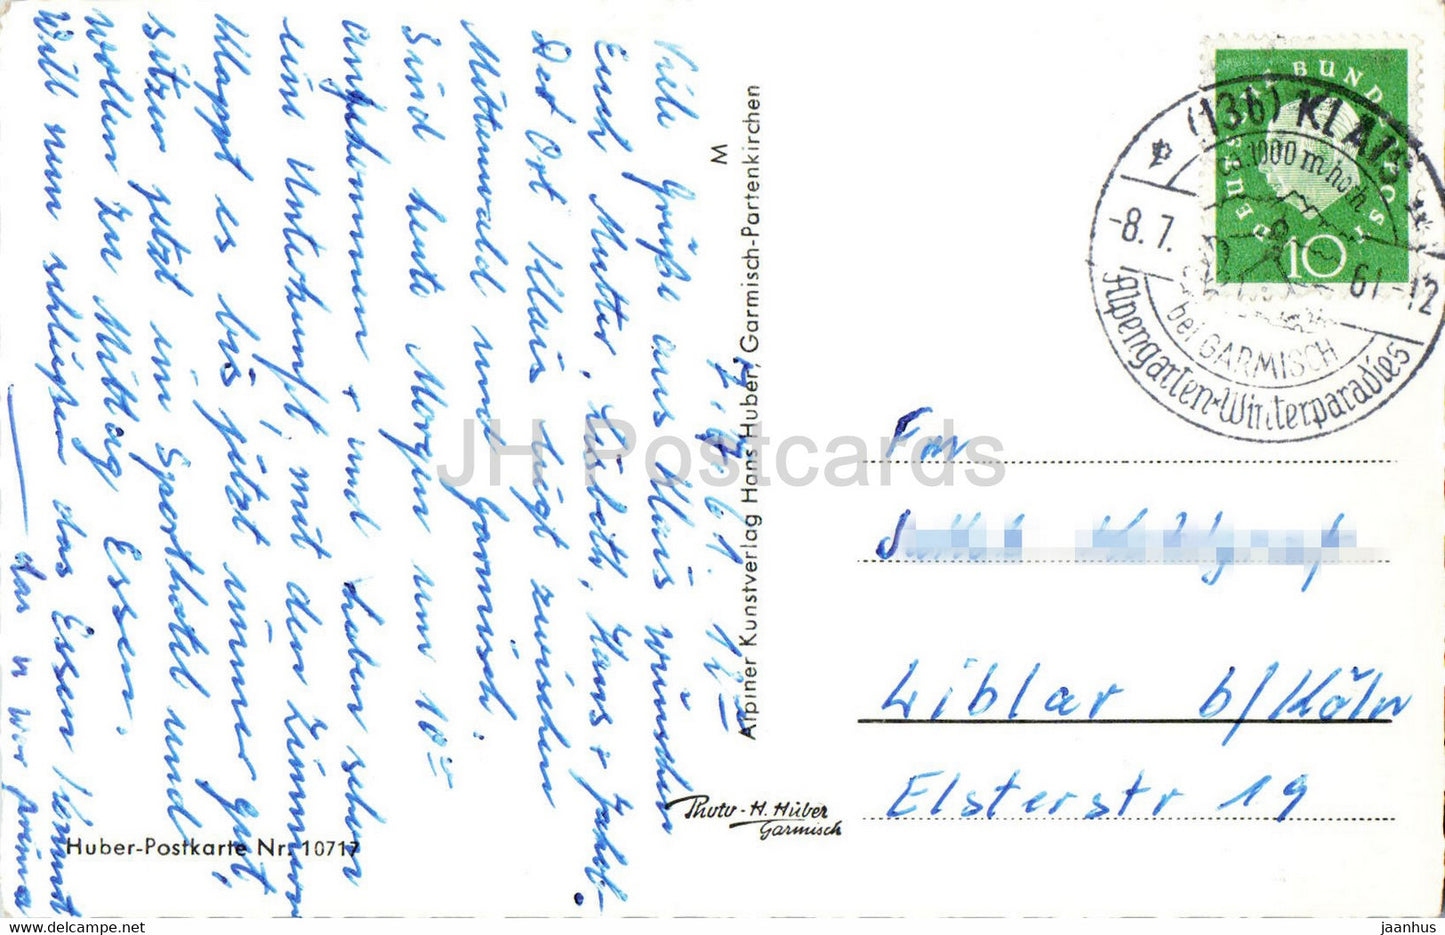 7.7.61. 12
Viele Grüße aus Klais wünschen
Euch Mutter, Lisbeth, Hans +
Der Ort Klais liegt zwischen
Mittenwald und Garmisch.
Sind heute Morgen um 10
angekommen + und haben schon
eine Unterkunft, mit den Zimmern
klappt es bis jetzt immer gut,
sitzen jetzt im Sporthotel und
wollen zu Mittag Essen.
Will nun schließen das Essen kommt
das war prima
M
Alpiner Kunstverlag Hans Huber, Garmisch-Partenkirchen
Photo-H. Huber
Garmisch
Huber-Postkarte Nr. 10717
DEUTSCHE BUNDESPOST
10
(13b) KLAIS
1000 m hoch
-8.7.61-12
bei GARMISCH
Alpengarten*Winterparadies
Liblar b/Köln
Elsterstr 19
JH Postcards
www.delcampe.net
jaanhus